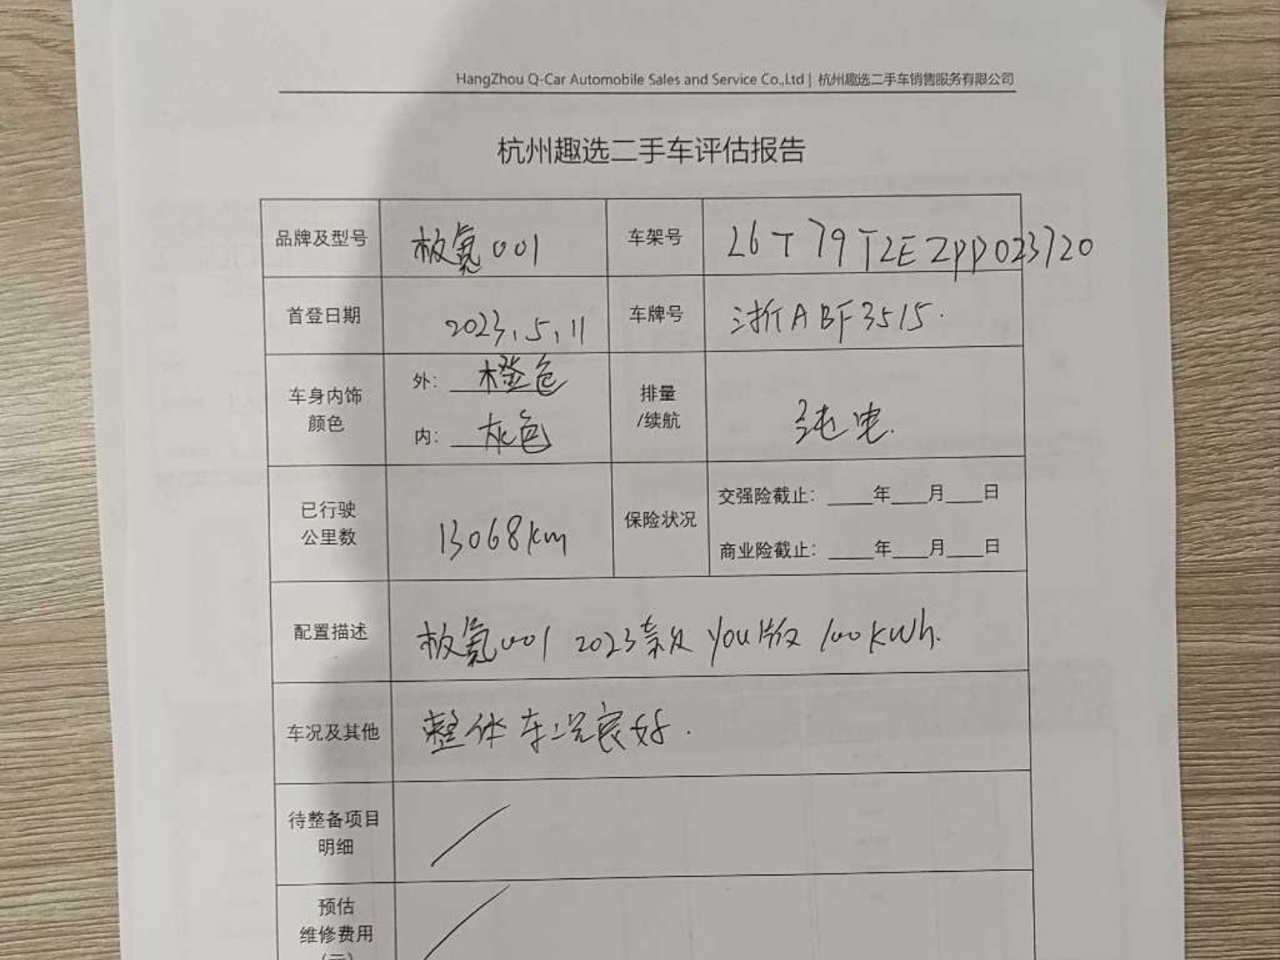 HangZhou Q-Car Automobile Sales and Service Co.,Ltd | 杭州趣选二手车销售服务有限公司
杭州趣选二手车评估报告
品牌及型号 极氪001 车架号 L6T79T2EZPP023720
首登日期 2023.5.11 车牌号 浙ABF3515.
车身内饰
颜色
外: 橙色
内: 灰色
排量
/续航
纯电.
已行驶
公里数
13068km
保险状况
交强险截止: ____年____月____日
商业险截止: ____年____月____日
配置描述 极氪001 2023款 YOU版 100kWh.
车况及其他 整体车况良好.
待整备项目
明细
预估
维修费用
(元)